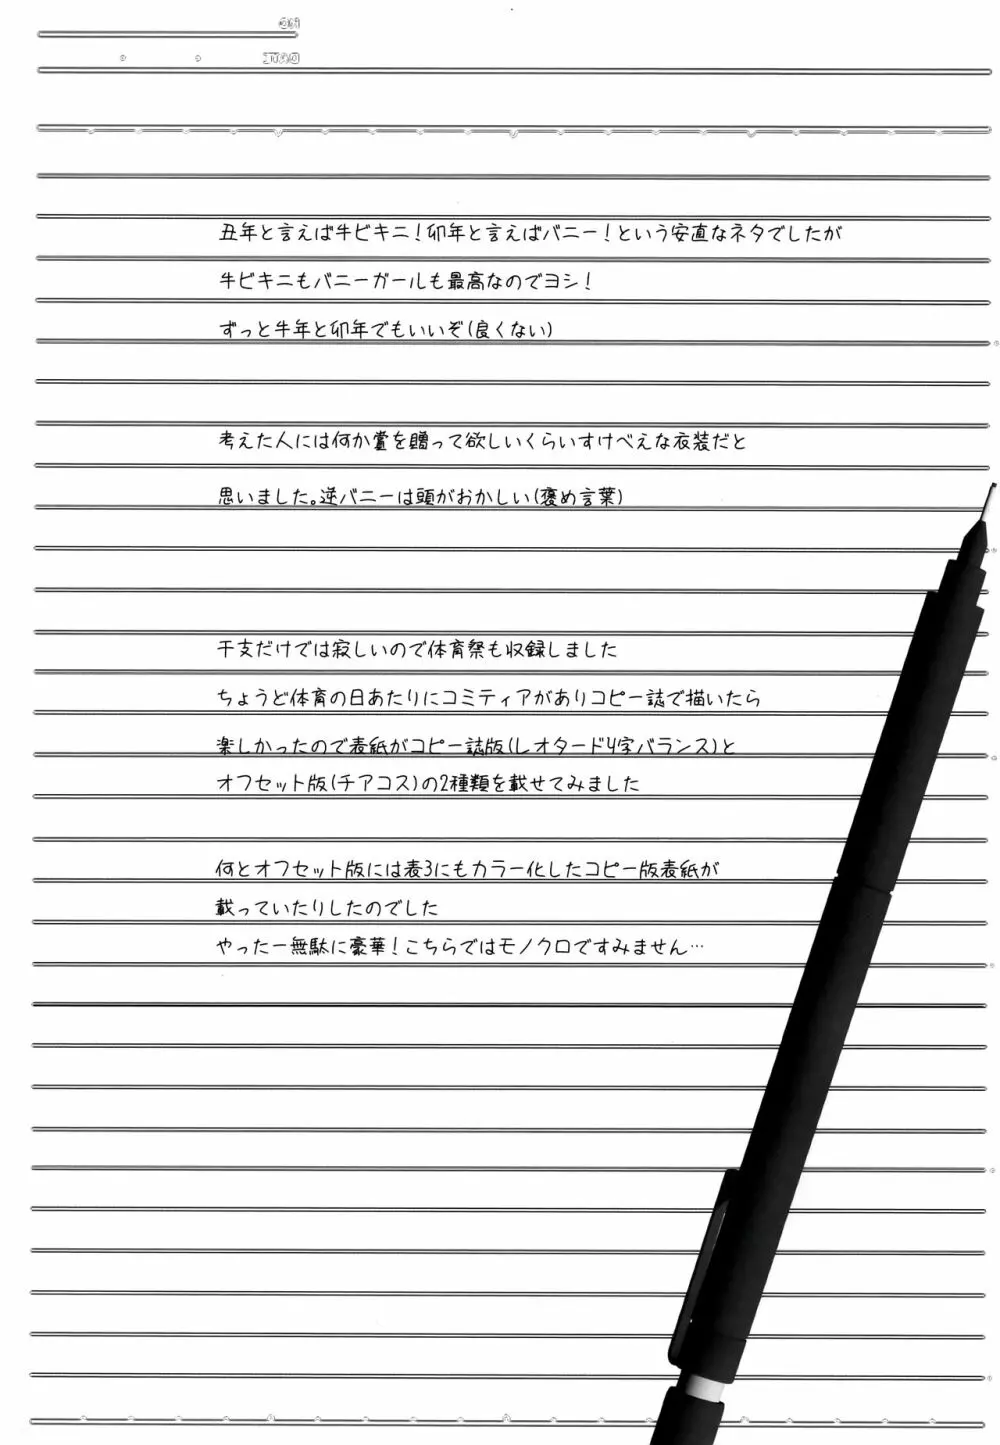 NO
DATE
丑年と言えば牛ビキニ!卯年と言えばバニー!という安直なネタでしたが
牛ビキニもバニーガールも最高なのでヨシ!
ずっと牛年と卯年でもいいぞ(良くない)
考えた人には何か賞を贈って欲しいくらいすけべえな衣装だと
思いました。逆バニーは頭がおかしい(褒め言葉)
干支だけでは寂しいので体育祭も収録しました
ちょうど体育の日あたりにコミティアがありコピー誌で描いたら
楽しかったので表紙がコピー誌版(レオタードY字バランス)と
オフセット版(チアコス)の2種類を載せてみました
何とオフセット版には表3にもカラー化したコピー版表紙が
載っていたりしたのでした
やったー無駄に豪華!こちらではモノクロですみません…